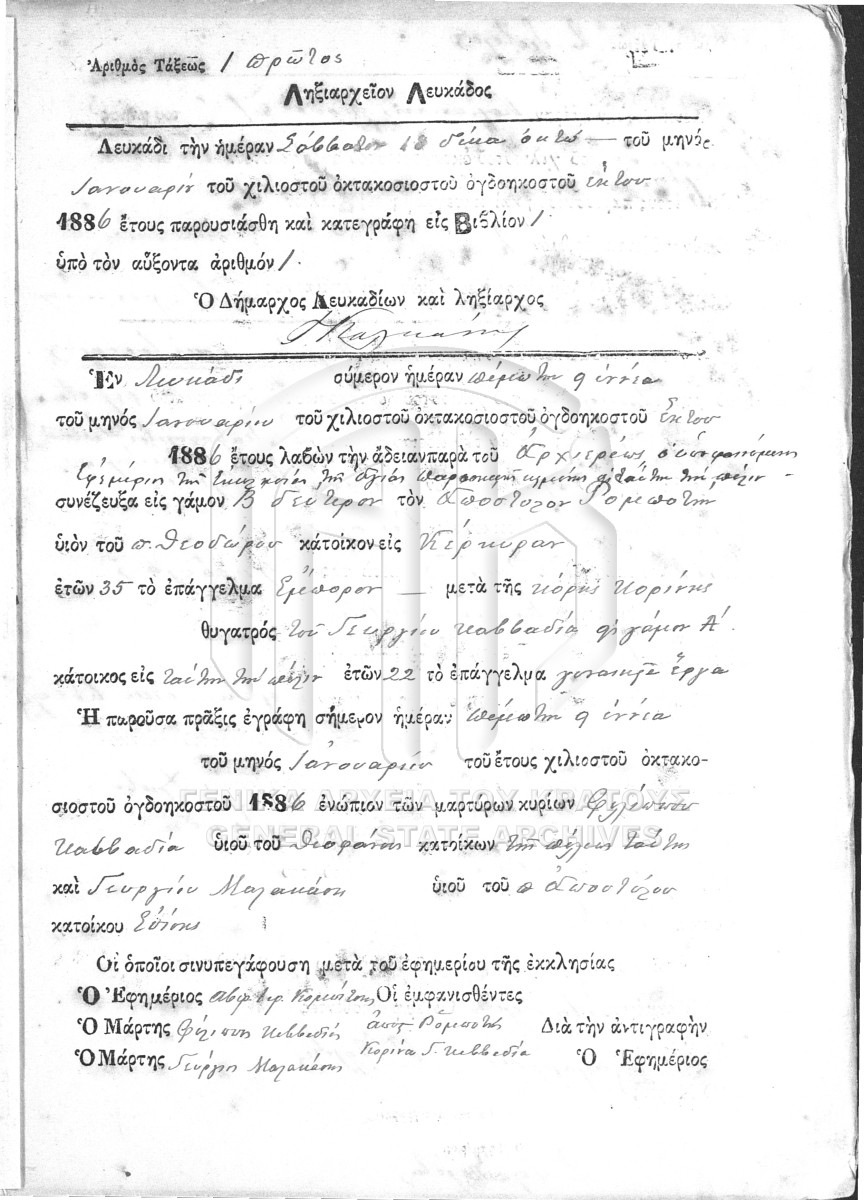 Ἀριθμὸς Τάξεως 1 πρῶτος
Ληξιαρχεῖον Λευκάδος
Λευκάδι τὴν ἡμέραν Σάββατον 18 δέκα ὀκτώ — τοῦ μηνός
Ιανουαρίου τοῦ χιλιοστοῦ ὀκτακοσιοστοῦ ὀγδοηκοστοῦ ἕκτου
1886 ἔτους παρουσιάσθη καὶ κατεγράφη εἰς Βιβλίον 1
ὑπὸ τὸν αὔξοντα ἀριθμόν 1.
Ὁ Δήμαρχος Λευκαδίων καὶ ληξίαρχος
Ἐν Λευκάδι σύμερον ἡμέραν πέμπτην 9 ἐννέα
τοῦ μηνός Ιανουαρίου τοῦ χιλιοστοῦ ὀκτακοσιοστοῦ ὀγδοηκοστοῦ ἕκτου
1886 ἔτους λαβὼν τὴν ἄδειαν παρὰ τοῦ Ἀρχιερέως, ὁ ὑποφαινόμενος
Ἐφημέριος τῆς Ἐκκλησίας τῆς ἁγίας Παρασκευῆς κειμένης εἰς ταύτην τὴν πόλιν -
συνέζευξα εἰς γάμον Β δεύτερον τὸν Ἀπόστολον Ρομποτην
υἱὸν τοῦ π. Θεοδώρου κάτοικον εἰς Κέρκυραν
ἐτῶν 35 τὸ ἐπάγγελμα Ἔμπορον — μετὰ τῆς κόρης Κορίνης
θυγατρός τοῦ Γεωργίου Καββαδία εἰς γάμον Α΄.
κάτοικος εἰς ταύτην τὴν πόλιν ἐτῶν 22 τὸ ἐπάγγελμα γυναικεῖα ἔργα
Ἡ παροῦσα πρᾶξις ἐγράφη σήμερον ἡμέραν πέμπτην 9 ἐννέα
τοῦ μηνός Ιανουαρίου τοῦ ἔτους χιλιοστοῦ ὀκτακο-
σιοστοῦ ὀγδοηκοστοῦ 1886 ἐνώπιον τῶν μαρτύρων κυρίων Φιλίππου
Καββαδία υἱοῦ τοῦ Θεοφάνης κατοίκων τῆς πόλεως ταύτης
καὶ Γεωργίου Μαλακάση υἱοῦ τοῦ π Ἀποστόλου
κατοίκου Ἐπίσης
Οἱ ὁποῖοι σινυπεγάφουση μετὰ τοῦ ἐφημερίου τῆς ἐκκλησίας
Ὁ Ἐφημέριος Οἱ ἐμφανισθέντες
Ὁ Μάρτης Φίλιππος Καββαδίας Ἀπος Ρομποτης Διὰ τὴν ἀντιγραφὴν
Ὁ Μάρτης Γεώργιος Μαλακάσης Κορίνα Γ. Καββαδία Ὁ Ἐφημέριος
ΓΕΝΙΚΑ ΑΡΧΕΙΑ ΤΟΥ ΚΡΑΤΟΥΣ
GENERAL STATE ARCHIVES